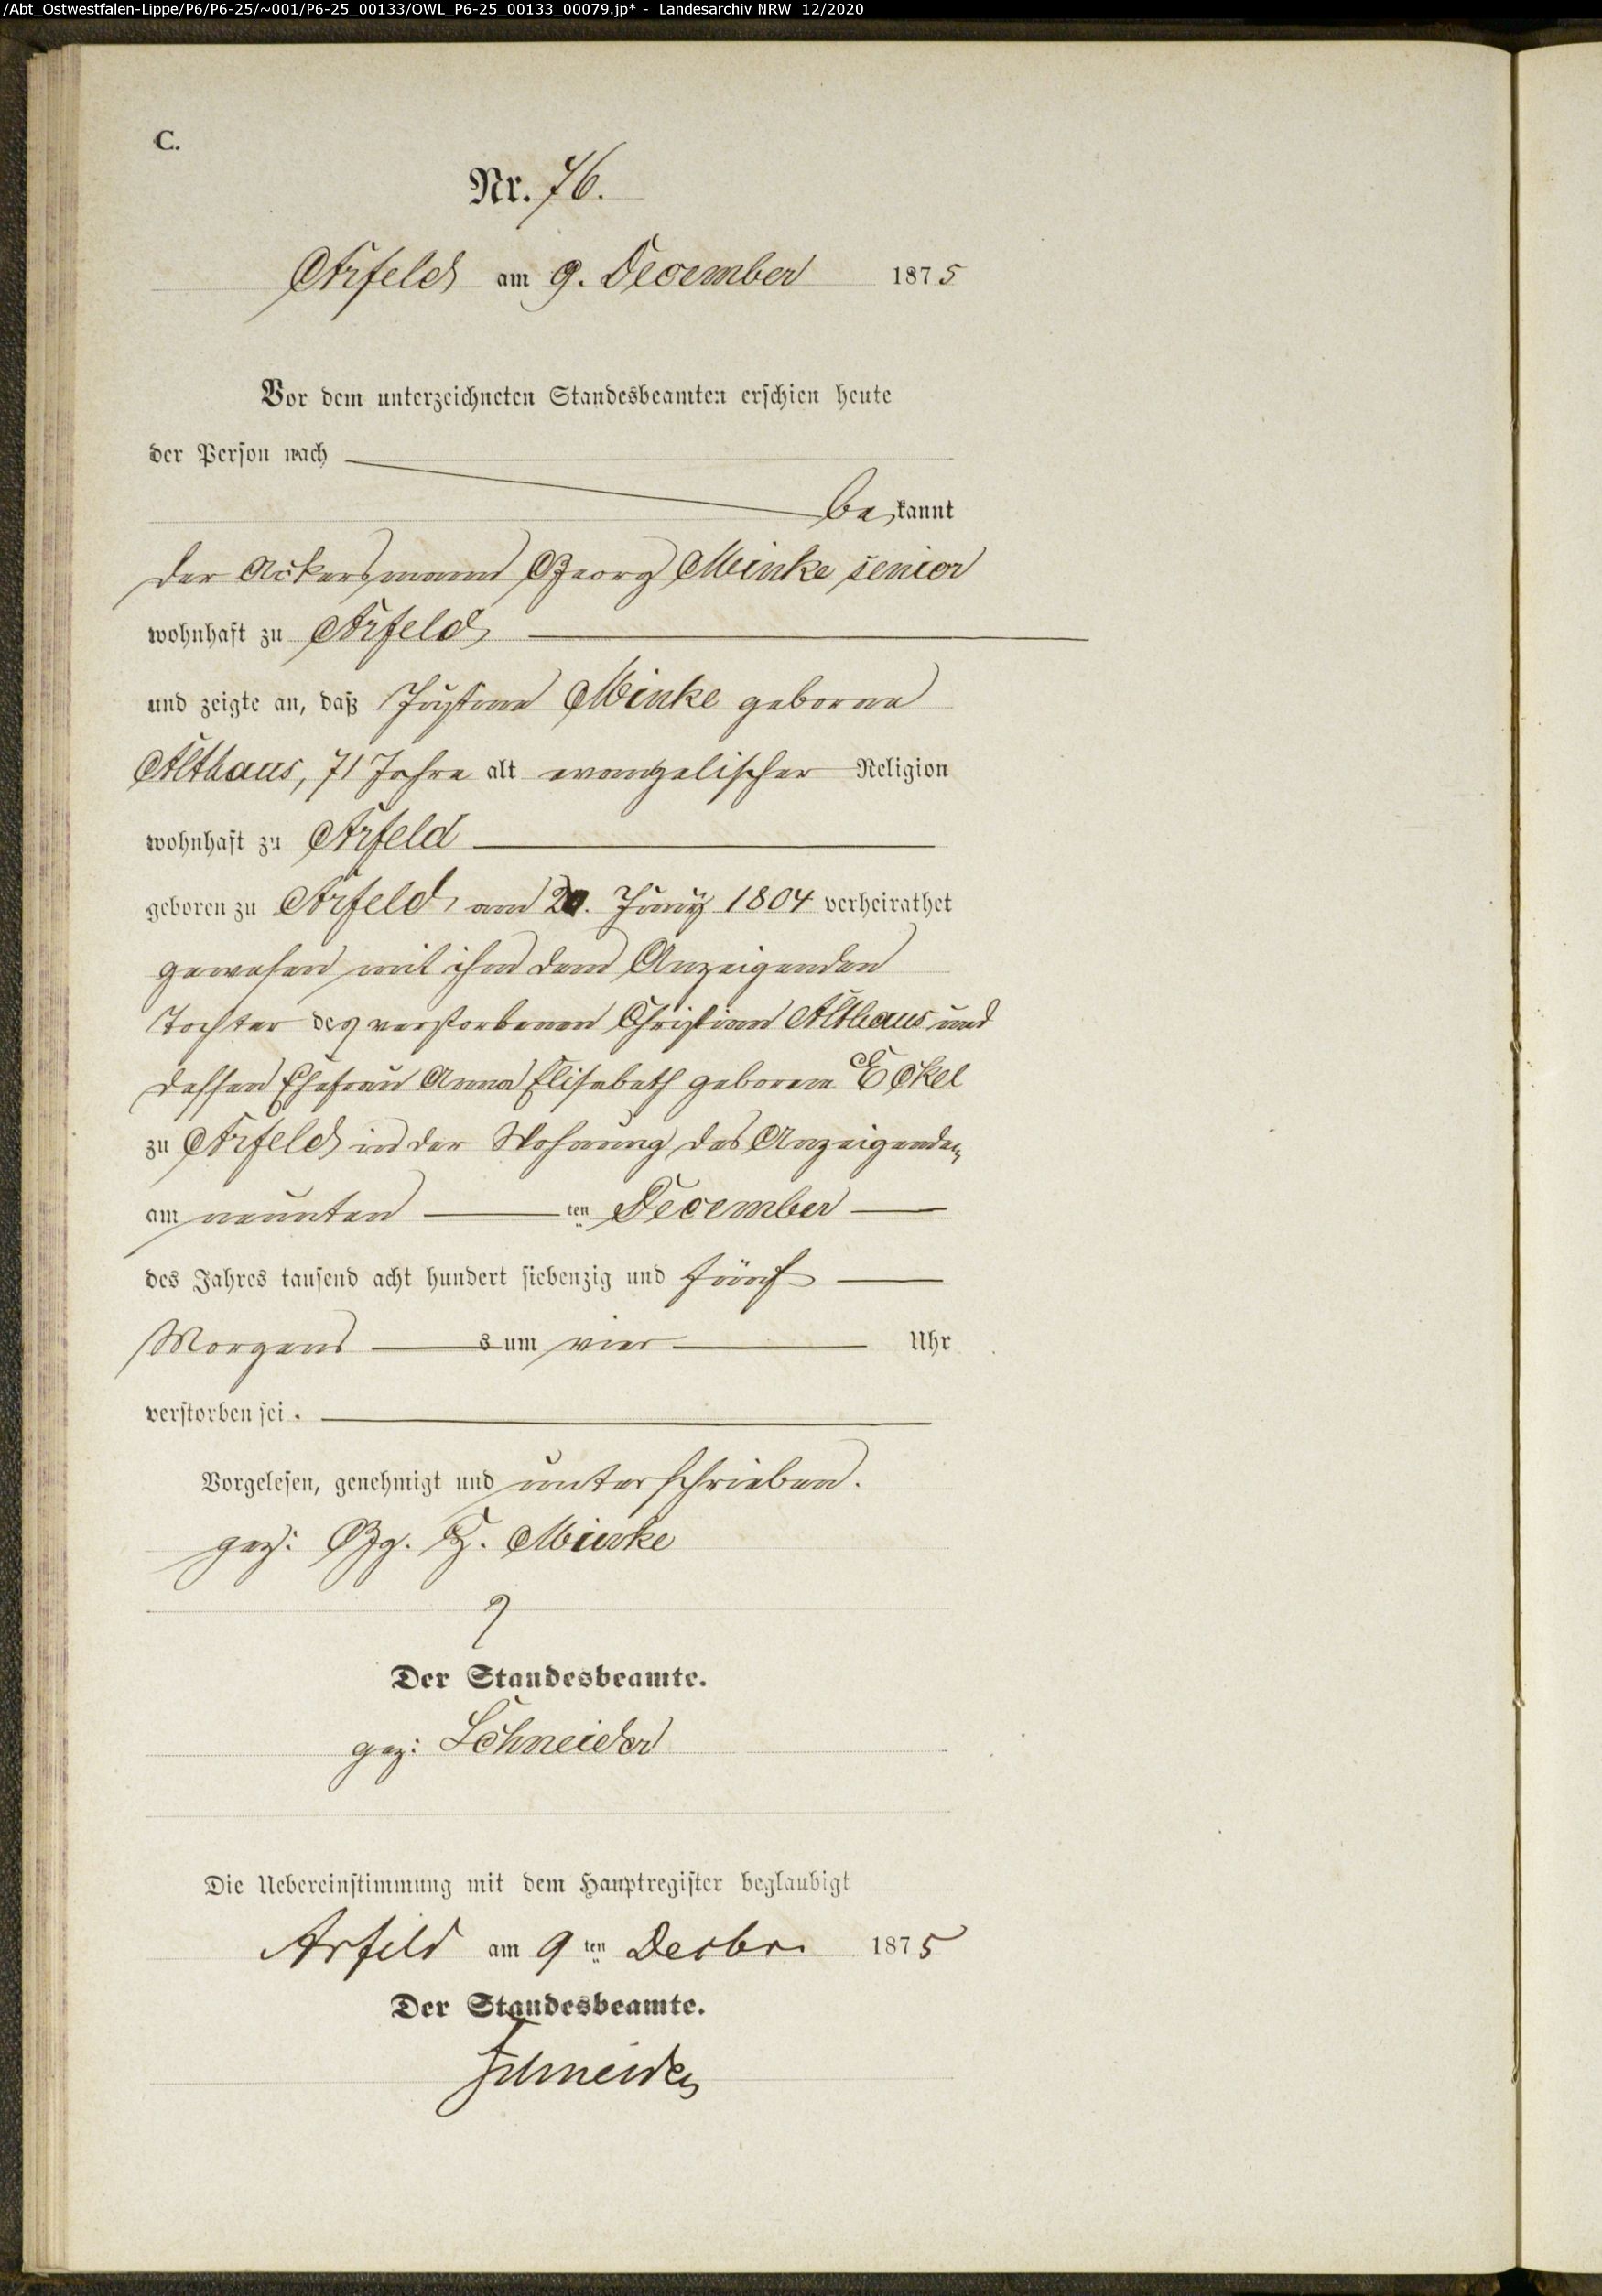 /Abt_Ostwestfalen-Lippe/P6/P6-25/~001/P6-25_00133/OWL_P6-25_00133_00079.jp* - Landesarchiv NRW 12/2020
C.
Nr. 76.
Arfeld am 9. December 1875
Vor dem unterzeichneten Standesbeamten erschien heute
der Person nach
bekannt
der Ackersmann Georg Meinke senior
wohnhaft zu Arfeld
und zeigte an, daß Justine Meinke geborne
Althaus, 71 Jahre alt evangelischer Religion
wohnhaft zu Arfeld
geboren zu Arfeld am 20. Juny 1804 verheirathet
gewesen mit ihm dem Anzeigenden
Tochter des verstorbenen Christian Althaus und
dessen Ehefrau Anna Elisabeth geborene Eckel
zu Arfeld in der Wohnung des Anzeigenden
am neunten ten December
des Jahres tausend acht hundert siebenzig und fünf
Morgens s um vier Uhr
verstorben sei.
Vorgelesen, genehmigt und unterschrieben.
gez: Gg. Meinke
Der Standesbeamte.
gez: Schneider
Die Uebereinstimmung mit dem Hauptregister beglaubigt
Arfeld am 9 ten Decbr. 1875
Der Standesbeamte.
Schneider